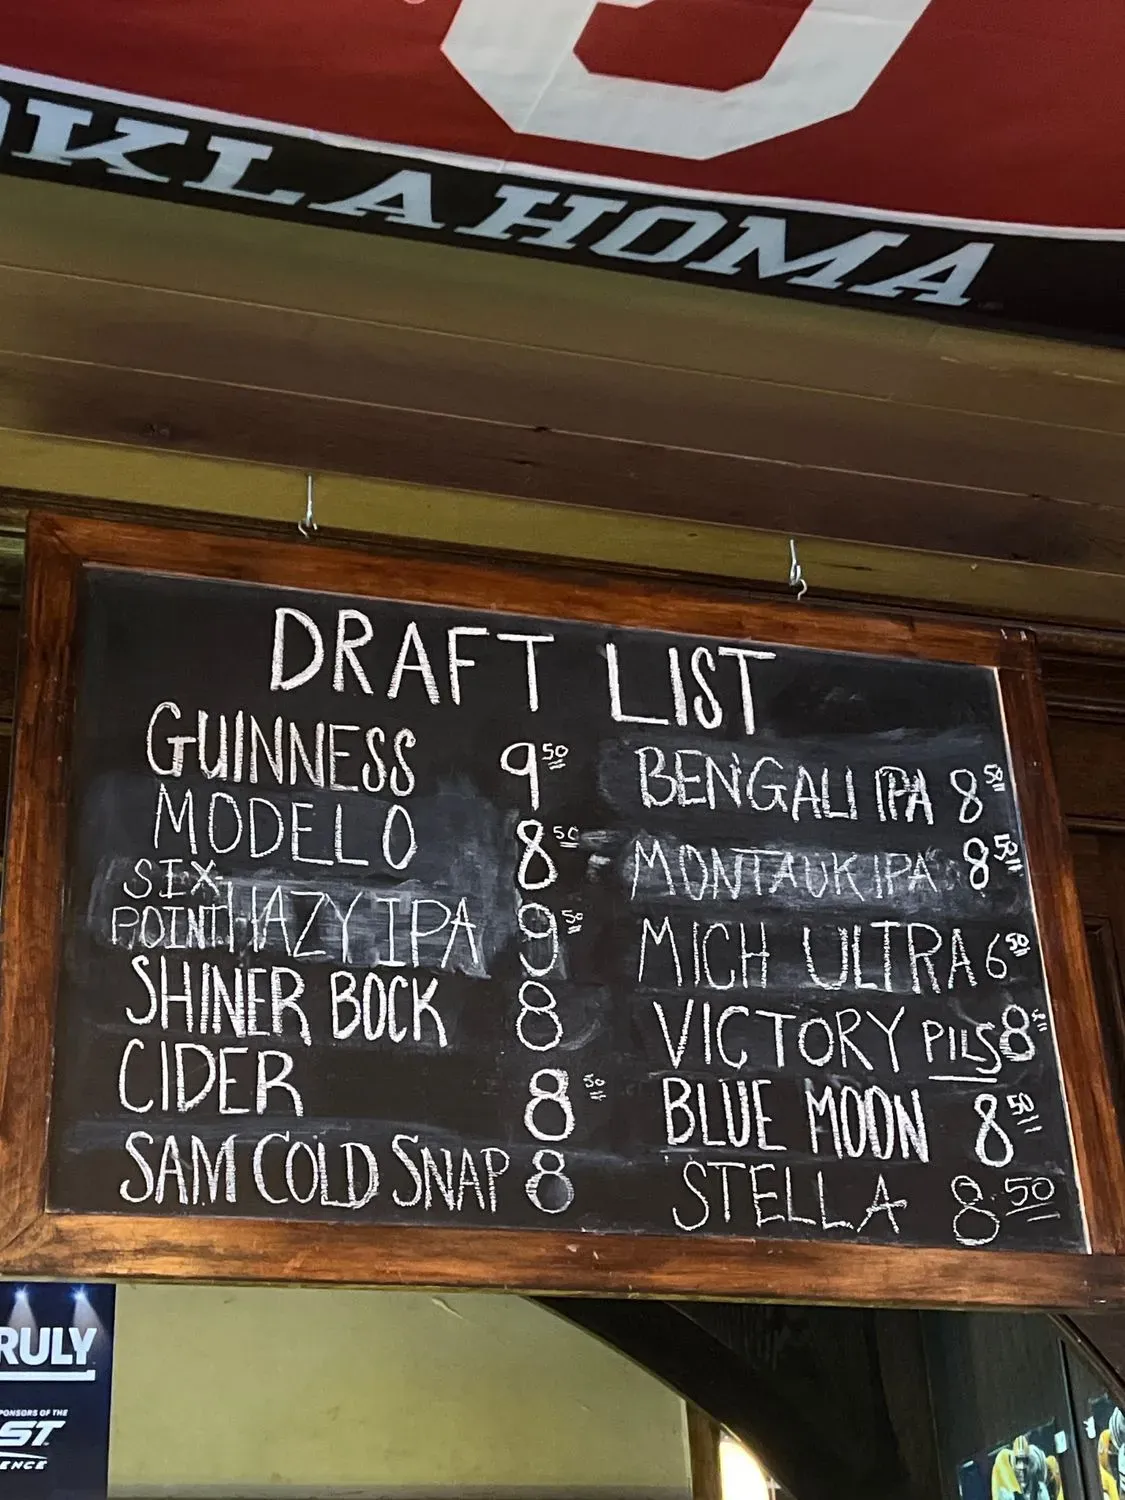 OKLAHOMA
DRAFT LIST
GUINNESS 9 50
MODELO 8 50
SIX
POINT HAZY IPA 9 50
SHINER BOCK 8
CIDER 8 50
SAM COLD SNAP 8
BENGALI IPA 8 50
MONTAUK IPA 8 50
MICH ULTRA 6 50
VICTORY PILS 8 50
BLUE MOON 8 50
STELLA 8 50
RULY
PONSORS OF THE
ST
ENCE